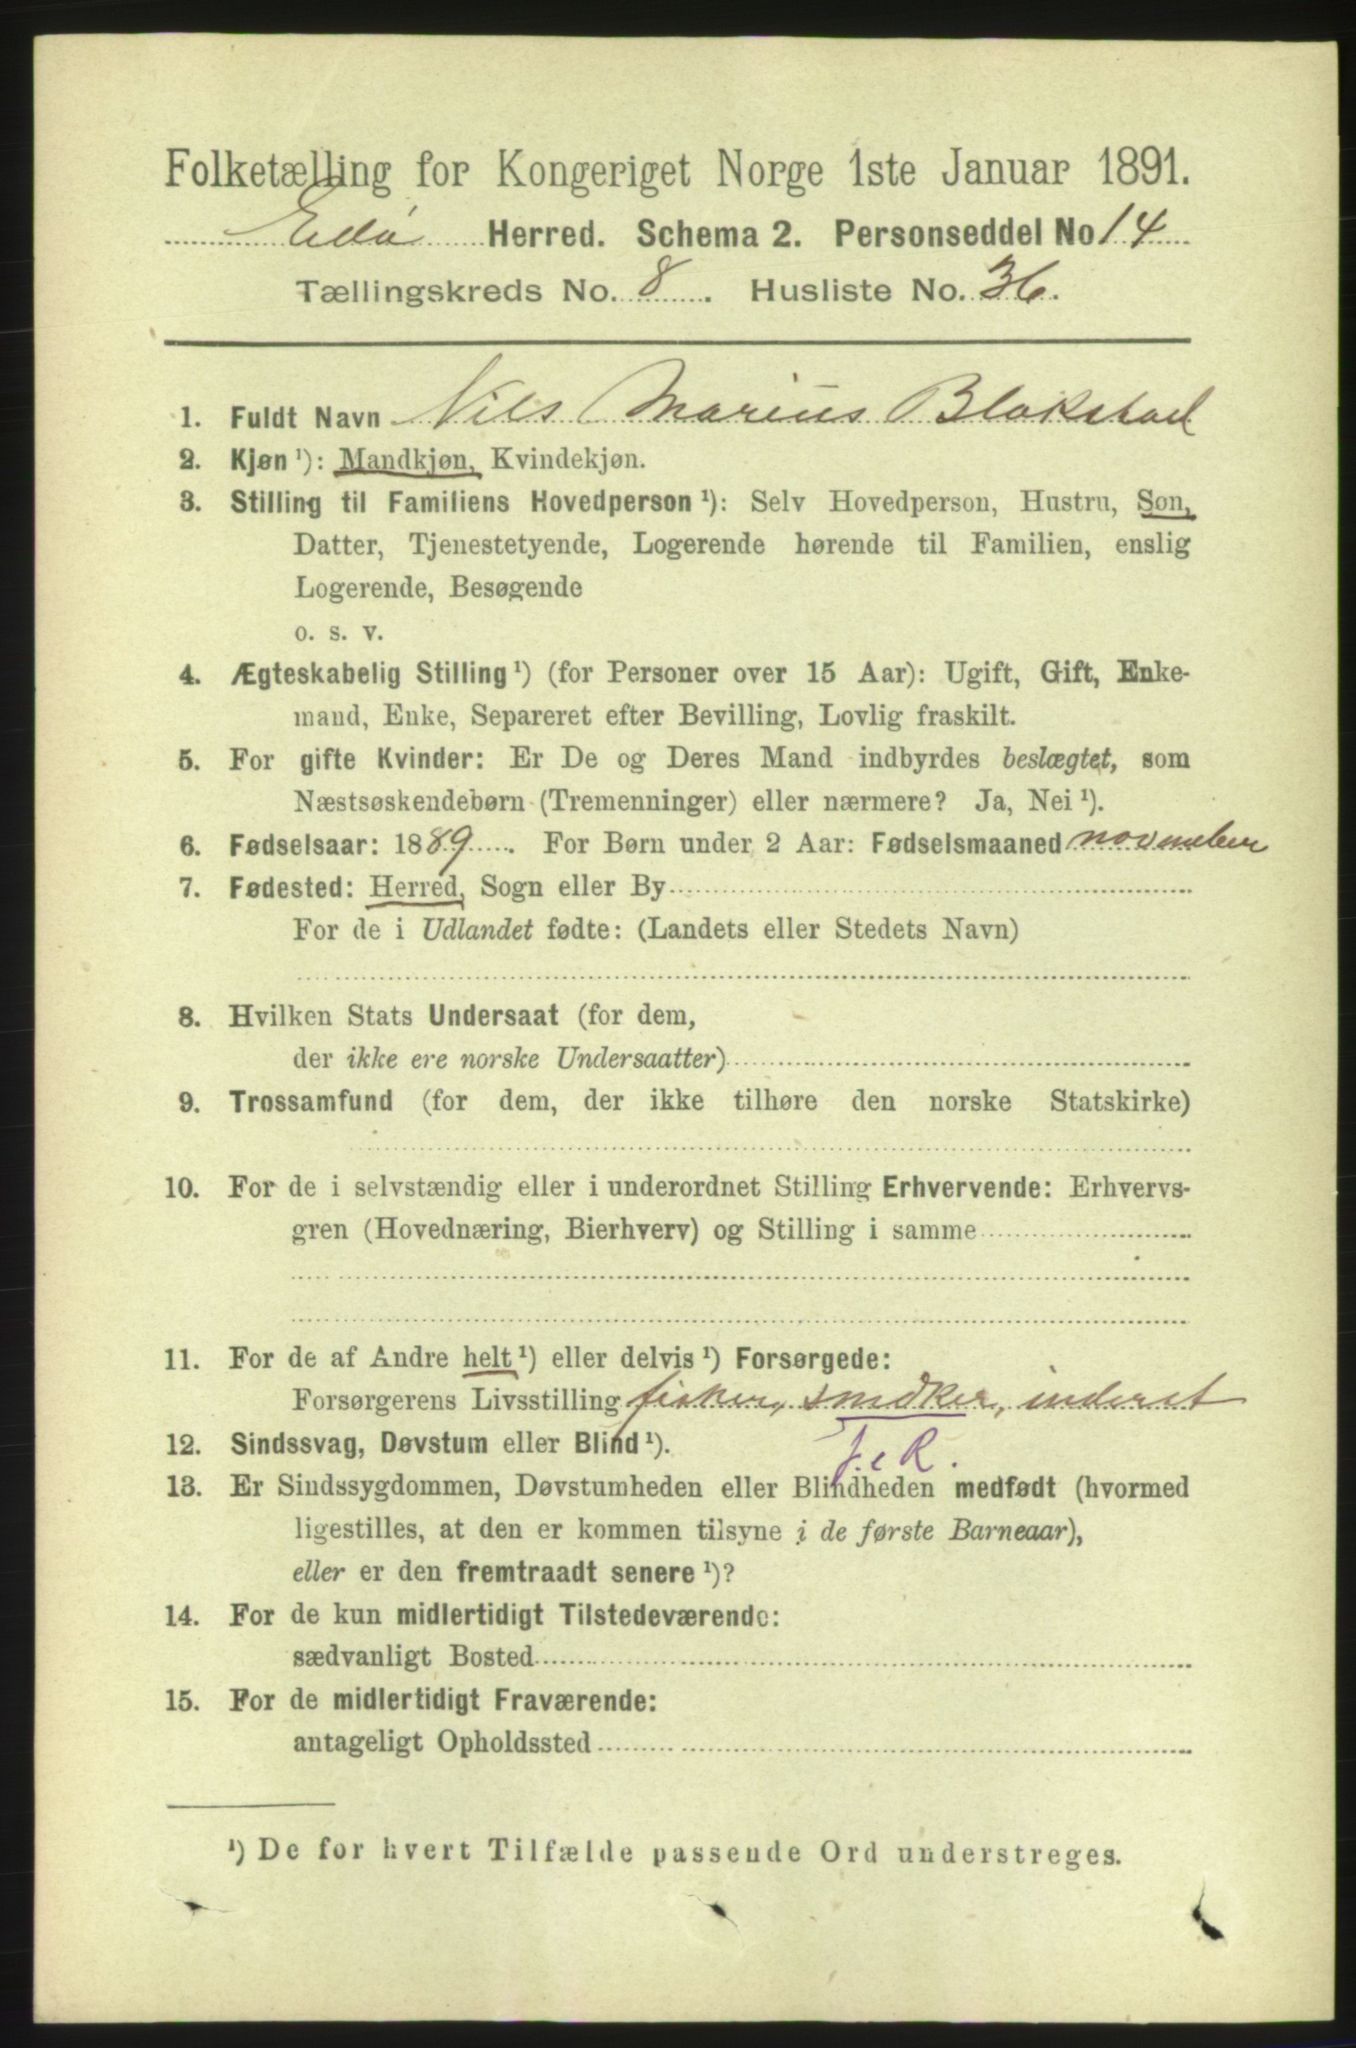 Folketælling for Kongeriget Norge 1ste Januar 1891.
Edø Herred. Schema 2. Personseddel No 14
Tællingskreds No. 8. Husliste No. 36.
1. Fuldt Navn Nils Marius Blakstad
2. Kjøn¹): Mandkjøn, Kvindekjøn.
3. Stilling til Familiens Hovedperson¹): Selv Hovedperson, Hustru, Søn,
Datter, Tjenestetyende, Logerende hørende til Familien, enslig
Logerende, Besøgende
o. s. v.
4. Ægteskabelig Stilling¹) (for Personer over 15 Aar): Ugift, Gift, Enke-
mand, Enke, Separeret efter Bevilling, Lovlig fraskilt.
5. For gifte Kvinder: Er De og Deres Mand indbyrdes beslægtet, som
Næstsøskendebørn (Tremenninger) eller nærmere? Ja, Nei¹).
6. Fødselsaar: 1889. For Børn under 2 Aar: Fødselsmaaned november
7. Fødested: Herred, Sogn eller By
For de i Udlandet fødte: (Landets eller Stedets Navn)
8. Hvilken Stats Undersaat (for dem,
der ikke ere norske Undersaatter)
9. Trossamfund (for dem, der ikke tilhøre den norske Statskirke)
10. For de i selvstændig eller i underordnet Stilling Erhvervende: Erhvervs-
gren (Hovednæring, Bierhverv) og Stilling i samme
11. For de af Andre helt¹) eller delvis¹) Forsørgede:
Forsørgerens Livsstilling fisker, snedker, inderst
12. Sindssvag, Døvstum eller Blind¹). F. e R.
13. Er Sindssygdommen, Døvstumheden eller Blindheden medfødt (hvormed
ligestilles, at den er kommen tilsyne i de første Barneaar),
eller er den fremtraadt senere¹)?
14. For de kun midlertidigt Tilstedeværende:
sædvanligt Bosted
15. For de midlertidigt Fraværende:
antageligt Opholdssted
¹) De for hvert Tilfælde passende Ord understreges.